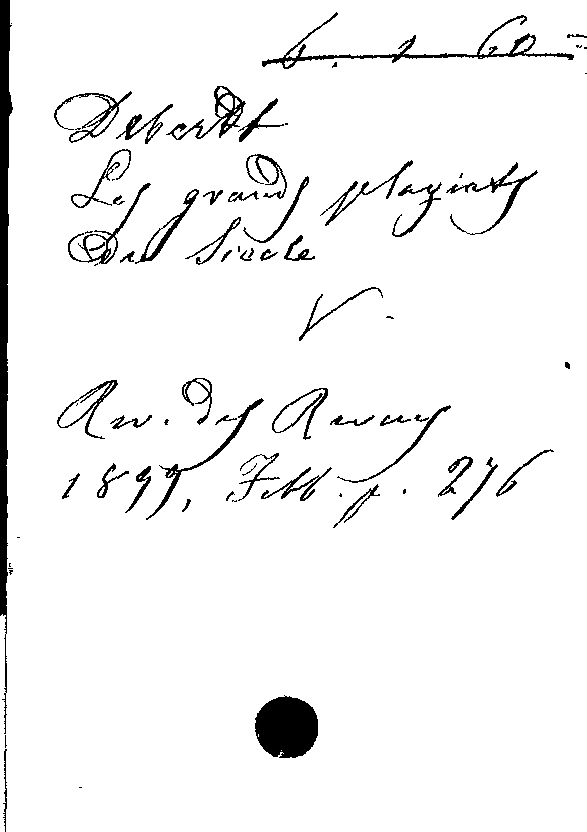 6. 1. 60
Deberdt
Les grands plagiats
du Siecle
V.
Rev. des Revues
1899, Feb. p. 276